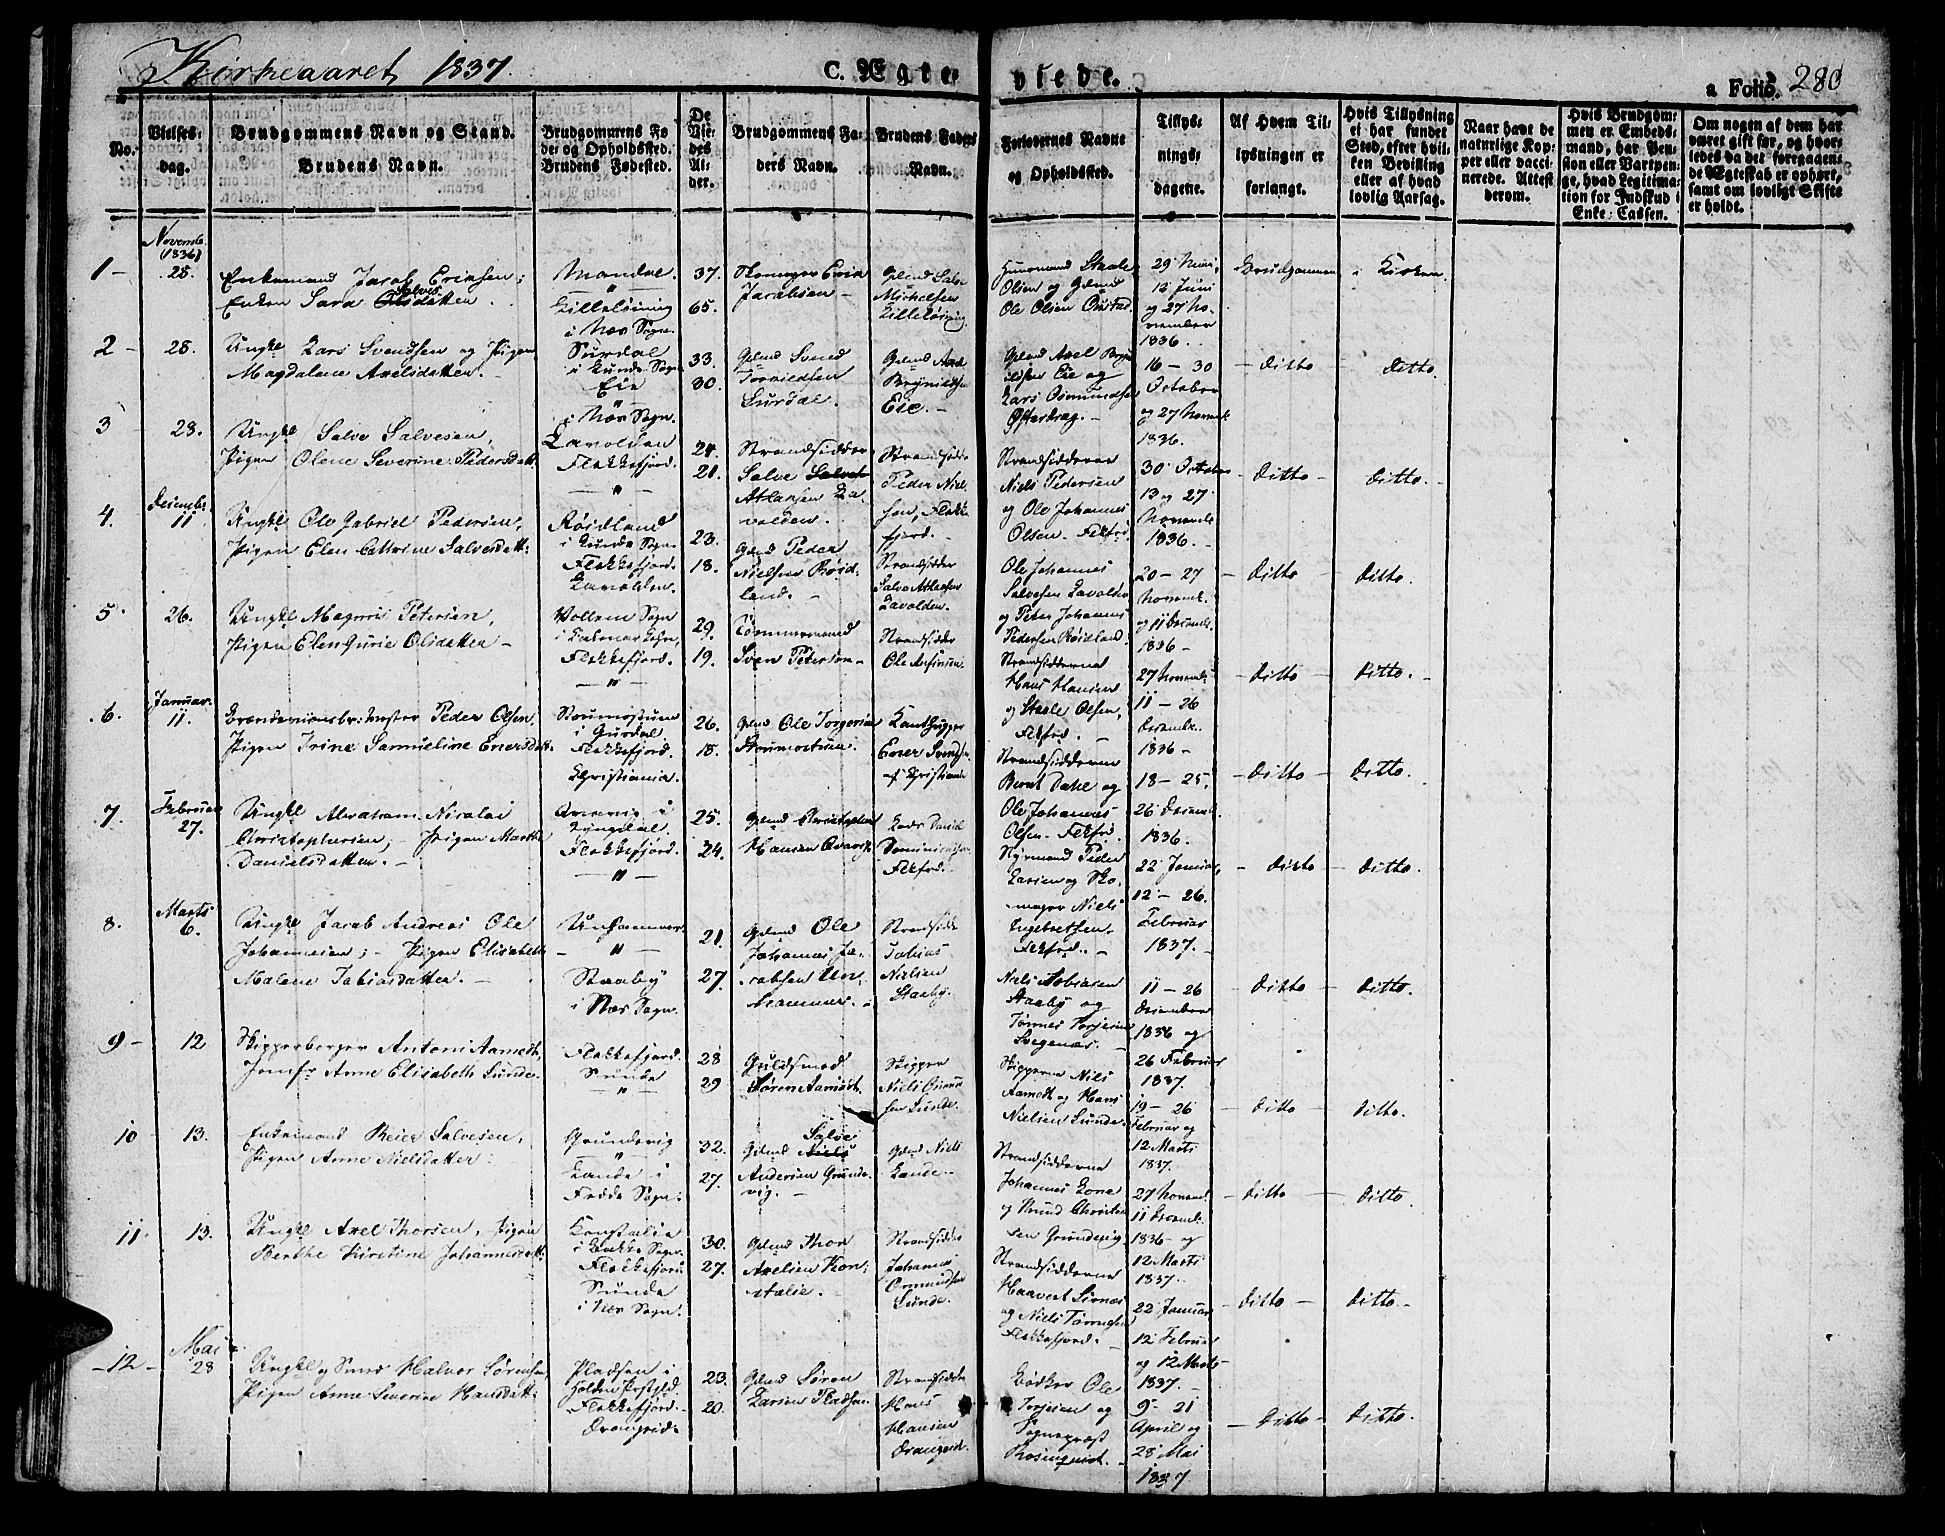 Kirkeaaret 1837.
C. Ægteviede.
a Folio. 280
No.
Vielses-dag.
Brudgommens Navn og Stand.
Brudens Navn.
Brudgommens Fø
de og Opholdssted.
Brudens Fødested.
De
Vie-
des
Al-
der.
Brudgommens Fa-
ders Navn.
Brudens Faders
Navn.
Forlovernes Navne
og Opholdssted.
Tillys-
nings-
dagene.
Af Hvem Til-
lysningen er
forlangt.
Hvis Tillysning
ei har fundet
Sted, efter hvil-
ken Bevilling
eller af hvad
lovlig Aarsag.
Naar havt de
naturlige Kop-
per eller vacci-
nerede. Attest
derom.
Hvis Brudgom-
men er Embeds-
mand, har Pen-
sion eller Vartpen-
ge, hvad Legitima-
tion for Indskud i
Enke-Cassen.
Om nogen af dem har
været gift før, og hvor-
ledes da det foregaaen-
de Ægteskab er ophørt,
samt om lovligt Skifte
er holdt.
1 -
Novemb.
(1836)
28.
Enkemand Jacob Ericksen;
Enken Sara Salves Olsdatter.
Mandal.
Lilleløining
i Næs Sogn.
37.
65.
Erick
Jacobsen
Gdmd Salve
Michelsen
Lilleløining.
Huusmand Staale
Olsen og Gdmd
Ole Olsen
29 Mai,
12 Juni
og 27 No-
vember
1836.
Brudgommen i Kirken
2 -
28.
Ungkl Lars Svendsen og Pigen
Magdalene Axelsdatter.
Surdal
i Lunde Sogn
Eie
i Næs Sogn.
33.
30.
Gdmd Svend
Torkildsen
Surdal.
Gdmd Axel
Brynildsen
Eie.
Gdmd Axel Bryn-
ildsen Eie og
Lars Osmundsen
16 - 30
October
og 27 Novemb.
1836.
ditto
ditto.
3
28.
Ungkl Salve Salvesen,
Pigen Olene Severine Pedersdatt:
Lavolden
Flekkefjord.
24.
21.
Strandsidder
Salve Salves
Atlaksen La-
volden.
Strandsidder
Peder Niel-
sen, Flekke-
fjord.
Strandsidderne
Niels Pedersen
og Ole Johannes
Olsen. Flkfrd.
30 October
13 og 27
Novemb.
1836.
ditto
ditto.
4.
Decembr.
11
Ungkl Ole Gabriel Pedersen,
Pigen Elen Cathrine Salvesdatt:
Røidland
i Lunde Sogn
Flekkefjord.
Lavolden.
23.
18.
Gdmd Peder
Nielsen Røid-
land.
Strandsidder
Salve Atlaksen
Lavolden.
Ole Johannes
Salvesen Lavolden
og Peter Johannes
Pedersen Røidland.
20 - 27
Novemb.
og 11 Decemb.
1836
ditto
ditto.
5.
26.
Ungkl Magnus Petersen,
Pigen Elen Gurie Olsdatter
Vollem Sogn
i Calmar Lehn,
Flekkefjord.
29.
19.
Tømmermand
Sven Peterson
Strandsidder
Ole Ansinsen.
Strandsidderne
Hans Hansen
og Staale Olsen,
Flkfrd.
27 Novemb.
11 - 26
Decembr.
1836
ditto
ditto.
6.
Januar.
11.
Brændeviinsbr: Mester Peder Olsen,
Pigen Trine Samueline Enersdatt:
Strumostuen
i Guddal
Flekkefjord.
Christiania.
26.
18.
Gdmd Ole Torgersen
Strumostuen.
Kanthugger
Ener Svendsen
af Christiania
Strandsidderne
Bernt Dahl og
Ole Johannes
Olsen. Flkfrd.
18 - 25,
26 Decemb.
1836.
ditto
ditto.
7.
Februar
27.
Ungkl Abraham Nicolai
Christophersen, Pigen Marthe
Danielsdatter.
Qvavig i
Lyngdal.
Flekkefjord.
25.
24.
Gdmd Christopher
Hansen Qvavik
Lods Daniel
Flkfrd.
Styrmand Peder
Larsen og Sko-
mager Niels
Ingebretsen.
Flkfrd.
22 Januar,
12 - 26.
Februar
1837.
ditto
ditto.
8.
Marts
6.
Ungkl Jacob Andreas Ole
Johannesen; - Pigen Elisabeth
Malene Tobiasdatter.
Unhammer
Staaby
i Næs Sogn.
21.
27.
Gdmd Ole
Johannes Ja-
cobsen Un-
hammer.
Strandsidder
Tobias
Nielsen
Staaby.
Niels Tobiasen
Staaby og
Tønnes Torjesen
11 - 26
December
1836 og
26 Februar
1837.
ditto
ditto.
9 -
12
Skipperborger Antoni Aamodt,
Jomfr Anne Elisabeth Sunde.
Flekkefjord.
Sunde
28
29
Guldsmed
Søren Aamodt.
Skipper
Niels
sen Sunde.
Skipperne Niels
Aamodt og Hans
Nielsen Sunde.
19 - 26
Februar og
12 Marts
1837.
ditto
ditto.
10
13.
Enkemand Reier Salvesen,
Pigen Anne Nielsdatter.
Grundevig
Lande i
Fedde Sogn.
32.
27.
Gdmd Salve Niels
Andersen Grunde-
vig.
Gdmd Niels
Lande.
Strandsidderne
Johannes Lone
og Knud Christen-
sen Grundevig.
27 Novemb.
11 Decemb.
1836 og
12 Marts
1837.
ditto
ditto
11
13.
Ungkl Axel Thorsen, Pigen
Berthe Kirstine Johannesdatt:
Konstalie
i Bakke Sogn.
Flekkefjord
Sunde
i Næs Sogn.
30.
27.
Gdmd Thor
Axelsen Kon-
stalie.
Strandsidder
Johannes
Osmundsen
Sunde.
Strandsidderne
Haavert Sirnæs
og Niels Tønnesen
Flekkefjord.
22 Januar
12 Februar
og 12 Marts
1837.
ditto
ditto.
12
Mai
28
Ungkl og Smed Halvor Sørensen,
Pigen Anne Severine Hansdatt:
Pladsen i
Holden Prstgjld.
Flekkefjord.
Drangeid.
23.
20.
Gdmd Søren
Larsen Pladsen.
Strandsidder
Hans
Hansen
Drangeid.
Bødker Ole
Torjesen og
Sognepræst
Rosenqvist.
9 - 21
April og
28 Mai
1837
ditto
ditto.